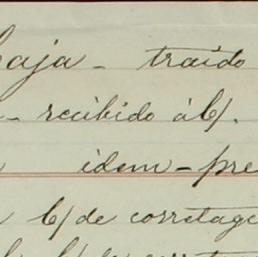 baja - traido
- recibido á b/.
idem - pre
b/ de corretage